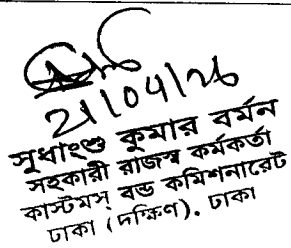 21/04/26
সুধাংশু কুমার বর্মন
সহকারী রাজস্ব কর্মকর্তা
কাস্টমস্ বন্ড কমিশনারেট
ঢাকা (দক্ষিণ), ঢাকা